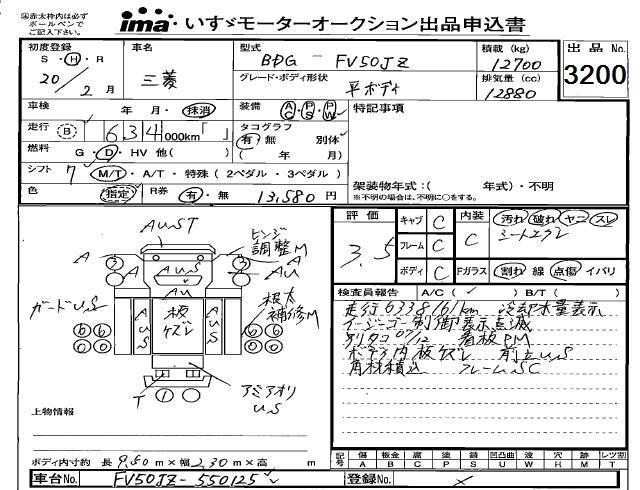 ㊟赤太枠内は必ず
ボールペンで
ご記入下さい。
ima いすゞモーターオークション出品申込書
初度登録 S・H・R 20 / 2月
車名 三菱
型式 BDG-FV50JZ
グレード・ボディ形状 平ボディ
積載 (kg) 12700
排気量 (cc) 12880
出品No. 3200
車検 年 月・抹消
装備 AC・PS・PW
特記事項
走行 B 634,000km「 」
タコグラフ 有・無 別体
燃料 G・D・HV 他( ) ( 年 月)
シフト 7 M/T・A/T・特殊(2ペダル・3ペダル)
架装物年式:( 年式)・不明
※不明の場合は、不明に○をする。
色 指定 R券 有・無 13,580円
評価 3.5
キャブ C
フレーム C
ボディ C
内装 C 汚れ 破れ ヤニ スレ
シートエクレ
Fガラス 割れ 線 点傷 イバリ
AUST
ヒンジ
調整M
A A
3 3
AUS AU
AU
ガードUS
AUS 板ズレ AUS
根太
補修M
6 6 6 6
6 6 6 6
T 1
アミアオリ
US
検査員報告 A/C( ✓ ) B/T( )
走行633816.1km 冷却水量表示
イージーゴー制御表示点滅
別タコ07/12 看板PM
ボデー内板ズレ 前立US
角材積込 フレームSC
上物情報
ボディ内寸約 長9.60m×幅2.30m×高 m
記号 傷A 板金B 腐C 凹P 塗P 錆S 凹凸曲U 波W 穴H 跡M レツ割T
車台No. FV50JZ-550125
登録No.